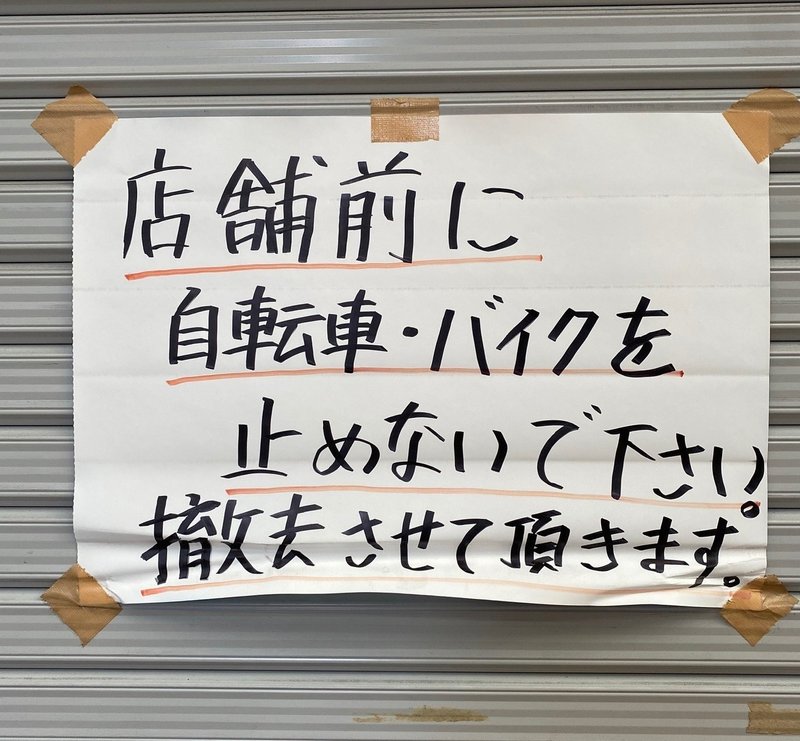 店舗前に
自転車・バイクを
止めないで下さい。
撤去させて頂きます。